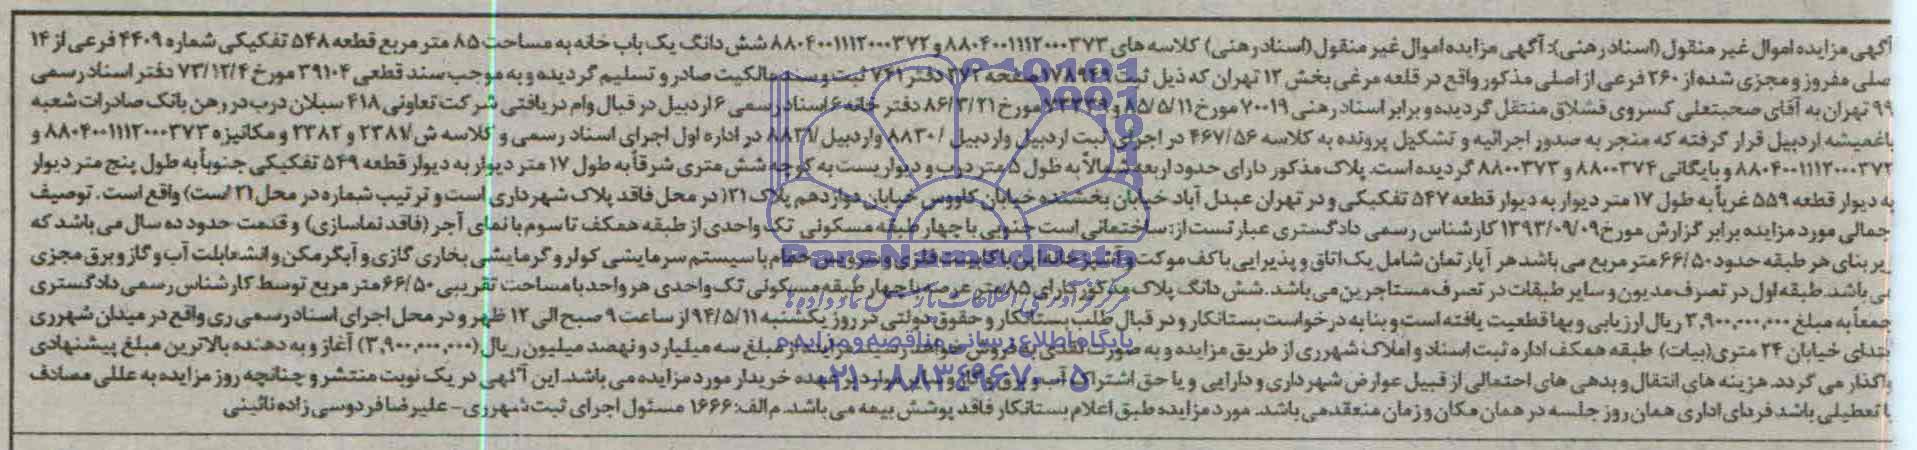 آگهی مزایده اموال غیر منقول (اسناد رهنی): آگهی مزایده اموال غیر منقول (اسناد رهنی) کلاسه های ۸۸۰۴۰۰۱۱۱۲۰۰۰۳۷۳ و ۸۸۰۴۰۰۱۱۱۲۰۰۰۳۷۲ شش دانگ یک باب خانه به مساحت ۸۵ متر مربع قطعه ۵۴۸ تفکیکی شماره ۴۴۰۹ فرعی از ۱۴
اصلی مفروز و مجزی شده از ۲۶۰ فرعی از اصلی مذکور واقع در قلعه مرغی بخش ۱۲ تهران که ذیل ثبت ۱۷۸۹۴۹ صفحه ۲۷۲ دفتر ۷۶۱ ثبت و سند مالکیت صادر و تسلیم گردیده و به موجب سند قطعی ۳۹۱۰۴ مورخ ۷۳/۱۲/۴ دفتر اسناد رسمی
۹۹ تهران به آقای صحبتعلی کسروی قشلاق منتقل گردیده و برابر اسناد رهنی ۷۰۰۱۹ مورخ ۸۵/۵/۱۱ و ۷۳۳۳۹ مورخ ۸۶/۳/۲۱ دفتر خانه ۶ اسناد رسمی ۶ اردبیل در قبال وام دریافتی شرکت تعاونی ۴۱۸ سبلان درب در رهن بانک صادرات شعبه
باغمیشه اردبیل قرار گرفته که منجر به صدور اجرائیه و تشکیل پرونده به کلاسه ۴۶۷/۵۶ در اجرای ثبت اردبیل واردبیل / ۸۸۳۰ واردبیل/۸۸۳۱ در اداره اول اجرای اسناد رسمی و کلاسه ش/۲۳۸۷ و ۲۳۸۲ و مکانیزه ۸۸۰۴۰۰۱۱۱۲۰۰۰۳۷۳ و
۸۸۰۴۰۰۱۱۱۲۰۰۰۳۷۲ و بایگانی ۸۸۰۰۳۷۴ و ۸۸۰۰۳۷۳ گردیده است. پلاک مذکور دارای حدود اربعه شمالاً به طول ۵ متر درب و دیواریست به کوچه شش متری شرقاً به طول ۱۷ متر دیوار به دیوار قطعه ۵۴۹ تفکیکی جنوباً به طول پنج متر دیوار
به دیوار قطعه ۵۵۹ غرباً به طول ۱۷ متر دیوار به دیوار قطعه ۵۴۷ تفکیکی و در تهران عبدل آباد خیابان بخشنده خیابان کاووس خیابان دوازدهم پلاک ۲۱( در محل فاقد پلاک شهرداری است و ترتیب شماره در محل ۲۱ است) واقع است. توصیف
اجمالی مورد مزایده برابر گزارش مورخ ۱۳۹۳/۰۹/۰۹ کارشناس رسمی دادگستری عبارتست از: ساختمانی است جنوبی با چهار طبقه مسکونی تک واحدی از طبقه همکف تا سوم با نمای آجر (فاقد نماسازی) و قدمت حدود ده سال می باشد که
زیر بنای هر طبقه حدود ۶۶/۵۰ متر مربع می باشد هر آپارتمان شامل یک اتاق و پذیرایی با کف موکت و آشپزخانه اپن با کابینت فلزی و سرویس حمام با سیستم سرمایشی کولر و گرمایشی بخاری گازی و آبگرمکن و انشعابات آب و گاز و برق مجزی
می باشد. طبقه اول در تصرف مدیون و سایر طبقات در تصرف مستاجرین می باشد. شش دانگ پلاک مذکور دارای ۸۵ متر عرصه با چهار طبقه مسکونی تک واحدی هر واحد با مساحت تقریبی ۶۶/۵۰ متر مربع توسط کارشناس رسمی دادگستری
جمعاً به مبلغ ۳,۹۰۰,۰۰۰,۰۰۰ ریال ارزیابی و بها قطعیت یافته است و بنا به درخواست بستانکار و در قبال طلب بستانکار و حقوق دولتی در روز یکشنبه ۹۴/۵/۱۱ از ساعت ۹ صبح الی ۱۲ ظهر و در محل اجرای اسناد رسمی ری واقع در میدان شهرری
ابتدای خیابان ۲۴ متری (بیات) طبقه همکف اداره ثبت اسناد و املاک شهرری از طریق مزایده و به صورت نقدی به فروش خواهد رسید. مزایده از مبلغ سه میلیارد و نهصد میلیون ریال (۳,۹۰۰,۰۰۰,۰۰۰) آغاز و به دهنده بالاترین مبلغ پیشنهادی
واگذار می گردد. هزینه های انتقال و بدهی های احتمالی از قبیل عوارض شهرداری و دارایی و یا حق اشتراک آب و برق و گاز و سایر موارد بر عهده خریدار مورد مزایده می باشد. این آگهی در یک نوبت منتشر و چنانچه روز مزایده به عللی مصادف
با تعطیلی باشد فردای اداری همان روز جلسه در همان مکان و زمان منعقد می باشد. مورد مزایده طبق اعلام بستانکار فاقد پوشش بیمه می باشد. م الف: ۱۶۶۶ مسئول اجرای ثبت شهرری - علیرضا فردوسی زاده نائینی
ParsNamadData
پایگاه اطلاع رسانی مناقصه و مزایده
۰۲۱-۸۸۳۴۹۶۷۰-۵